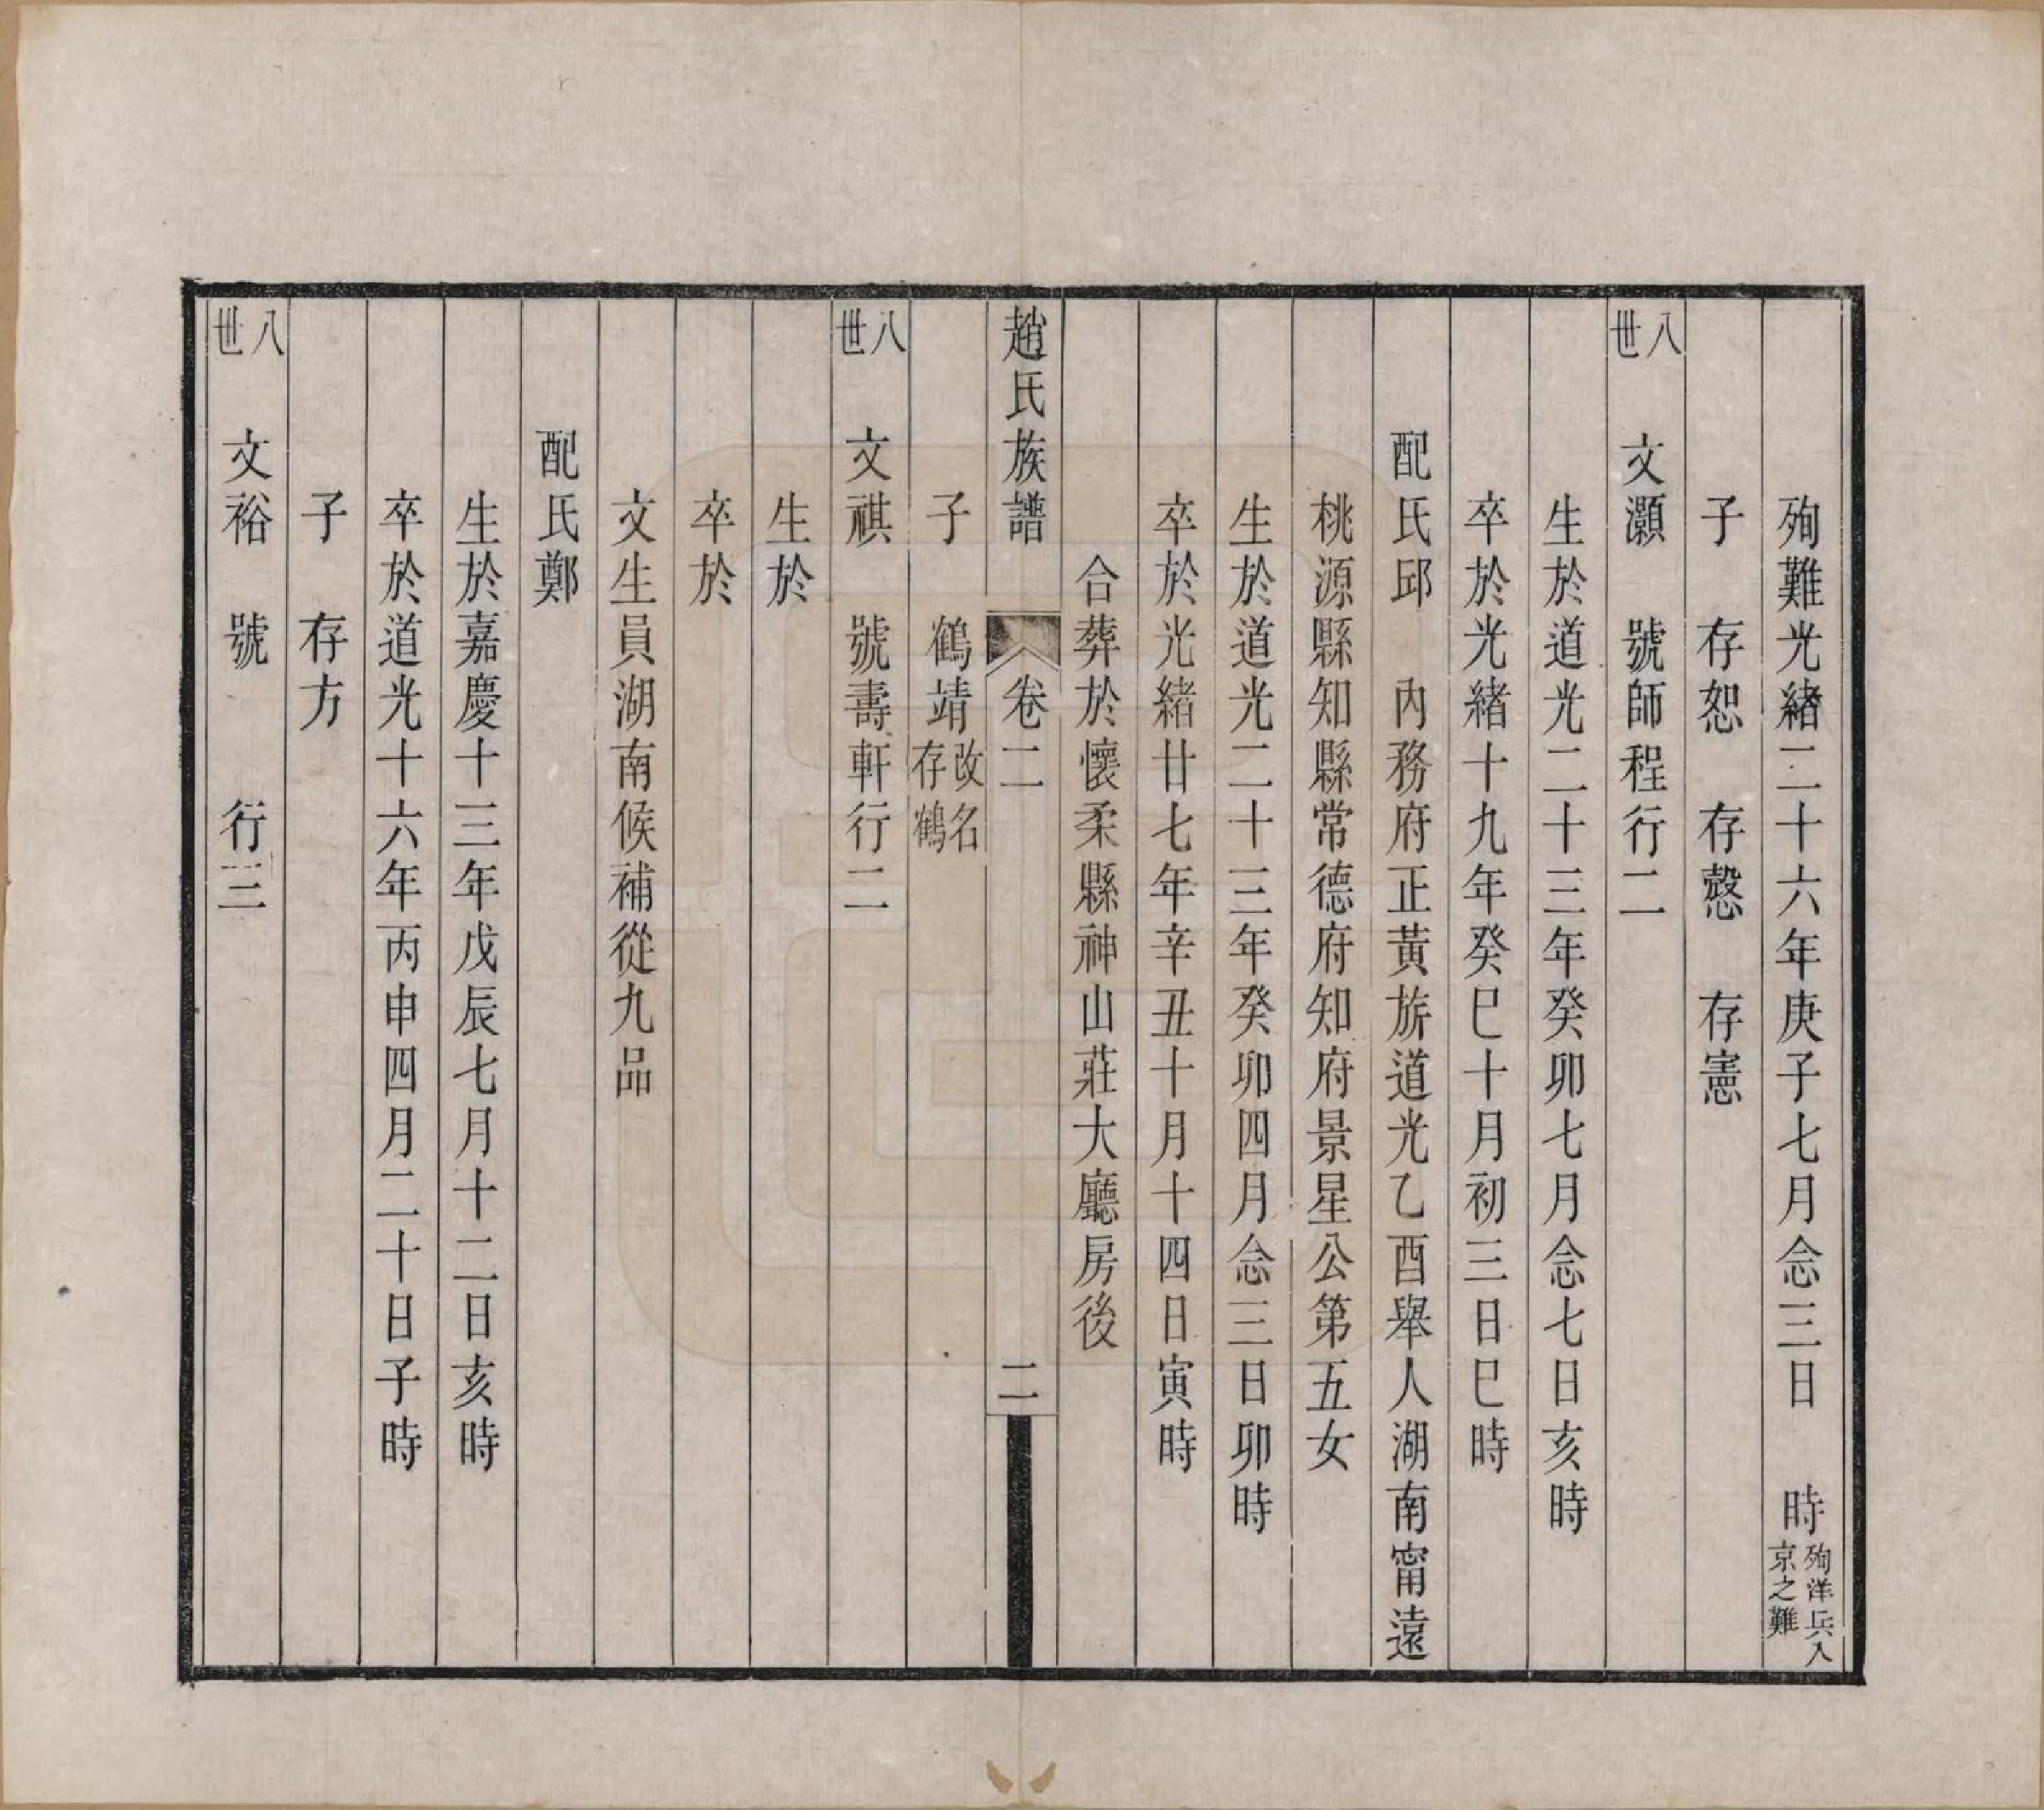 殉難光緒二十六年庚子七月念三日　時殉洋兵入京之難
子　存恕　存慤　存憲
八世　文灝　號師程行二
生於道光二十三年癸卯七月念七日亥時
卒於光緒十九年癸巳十月初三日巳時
配氏邱　內務府正黃旂道光乙酉舉人湖南甯遠
桃源縣知縣常德府知府景星公第五女
生於道光二十三年癸卯四月念三日卯時
卒於光緒廿七年辛丑十月十四日寅時
合葬於懷柔縣神山莊大廳房後
趙氏族譜　卷二　二
子　鶴靖改名存鶴
八世　文祺　號壽軒行二
生於
卒於
文生員湖南候補從九品
配氏鄭
生於嘉慶十三年戊辰七月十二日亥時
卒於道光十六年丙申四月二十日子時
子　存方
八世　文裕　號　　行三